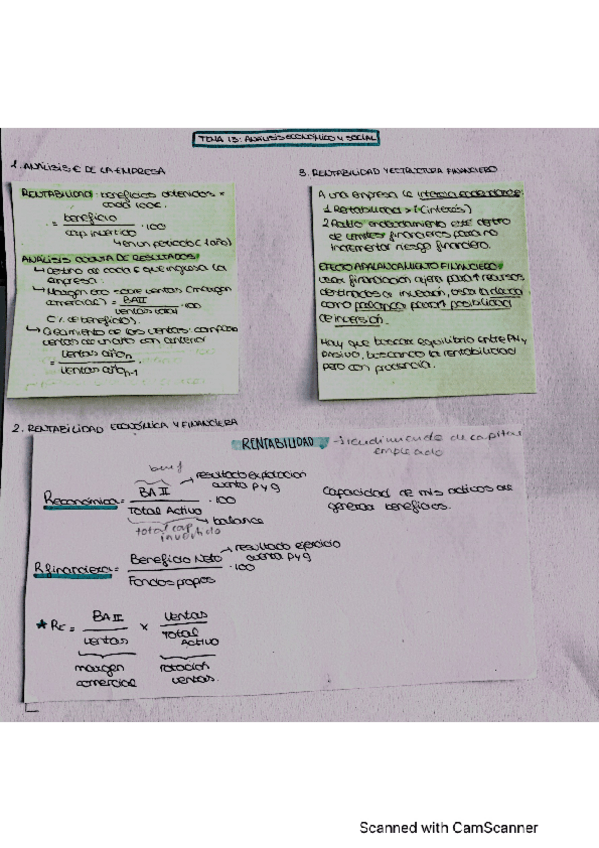 TEMA 13: ANÁLISIS ECONÓMICO Y SOCIAL
1. ANÁLISIS € DE LA EMPRESA
RENTABILIDAD: beneficios obtenidos x
cada 100€.
= beneficio / cap. invertido · 100
en un periodo (1 año)
ANÁLISIS CUENTA DE RESULTADOS
↳ Destino de cada € que ingresa la
empresa.
↳ Margen sobre ventas (margen
comercial) = BAII / ventas total · 100
(% de beneficios).
↳ Crecimiento de las ventas: compara
ventas de un año con anterior
= ventas año n / ventas año n-1
3. RENTABILIDAD Y ESTRUCTURA FINANCIERO
A una empresa le interesa endeudarse:
1. Rentabilidad > i (interés)
2. Ratio endeudamiento esté dentro
de límites financieros para no
incrementar riesgo financiero.
EFECTO APALANCAMIENTO FINANCIERO:
usar financiación ajena para ↑ recursos
destinados a inversión, usar la deuda
como palanca para ↑ posibilidad
de inversión.
Hay que buscar equilibrio entre PN y
Pasivo, buscando la rentabilidad
pero con prudencia.
2. RENTABILIDAD ECONÓMICA Y FINANCIERA
RENTABILIDAD → rendimiento de capital
empleado
benf
→ resultado explotación
cuenta P y G
Reconómica = BAII / Total Activo · 100
→ balance
total cap
invertido
Capacidad de mis activos de
generar beneficios.
→ resultado ejercicio
cuenta P y G
Rfinanciera = Beneficio Neto / Fondos propios · 100
* RE = BAII / ventas x ventas / Total Activo
margen comercial
rotación ventas.
Scanned with CamScanner